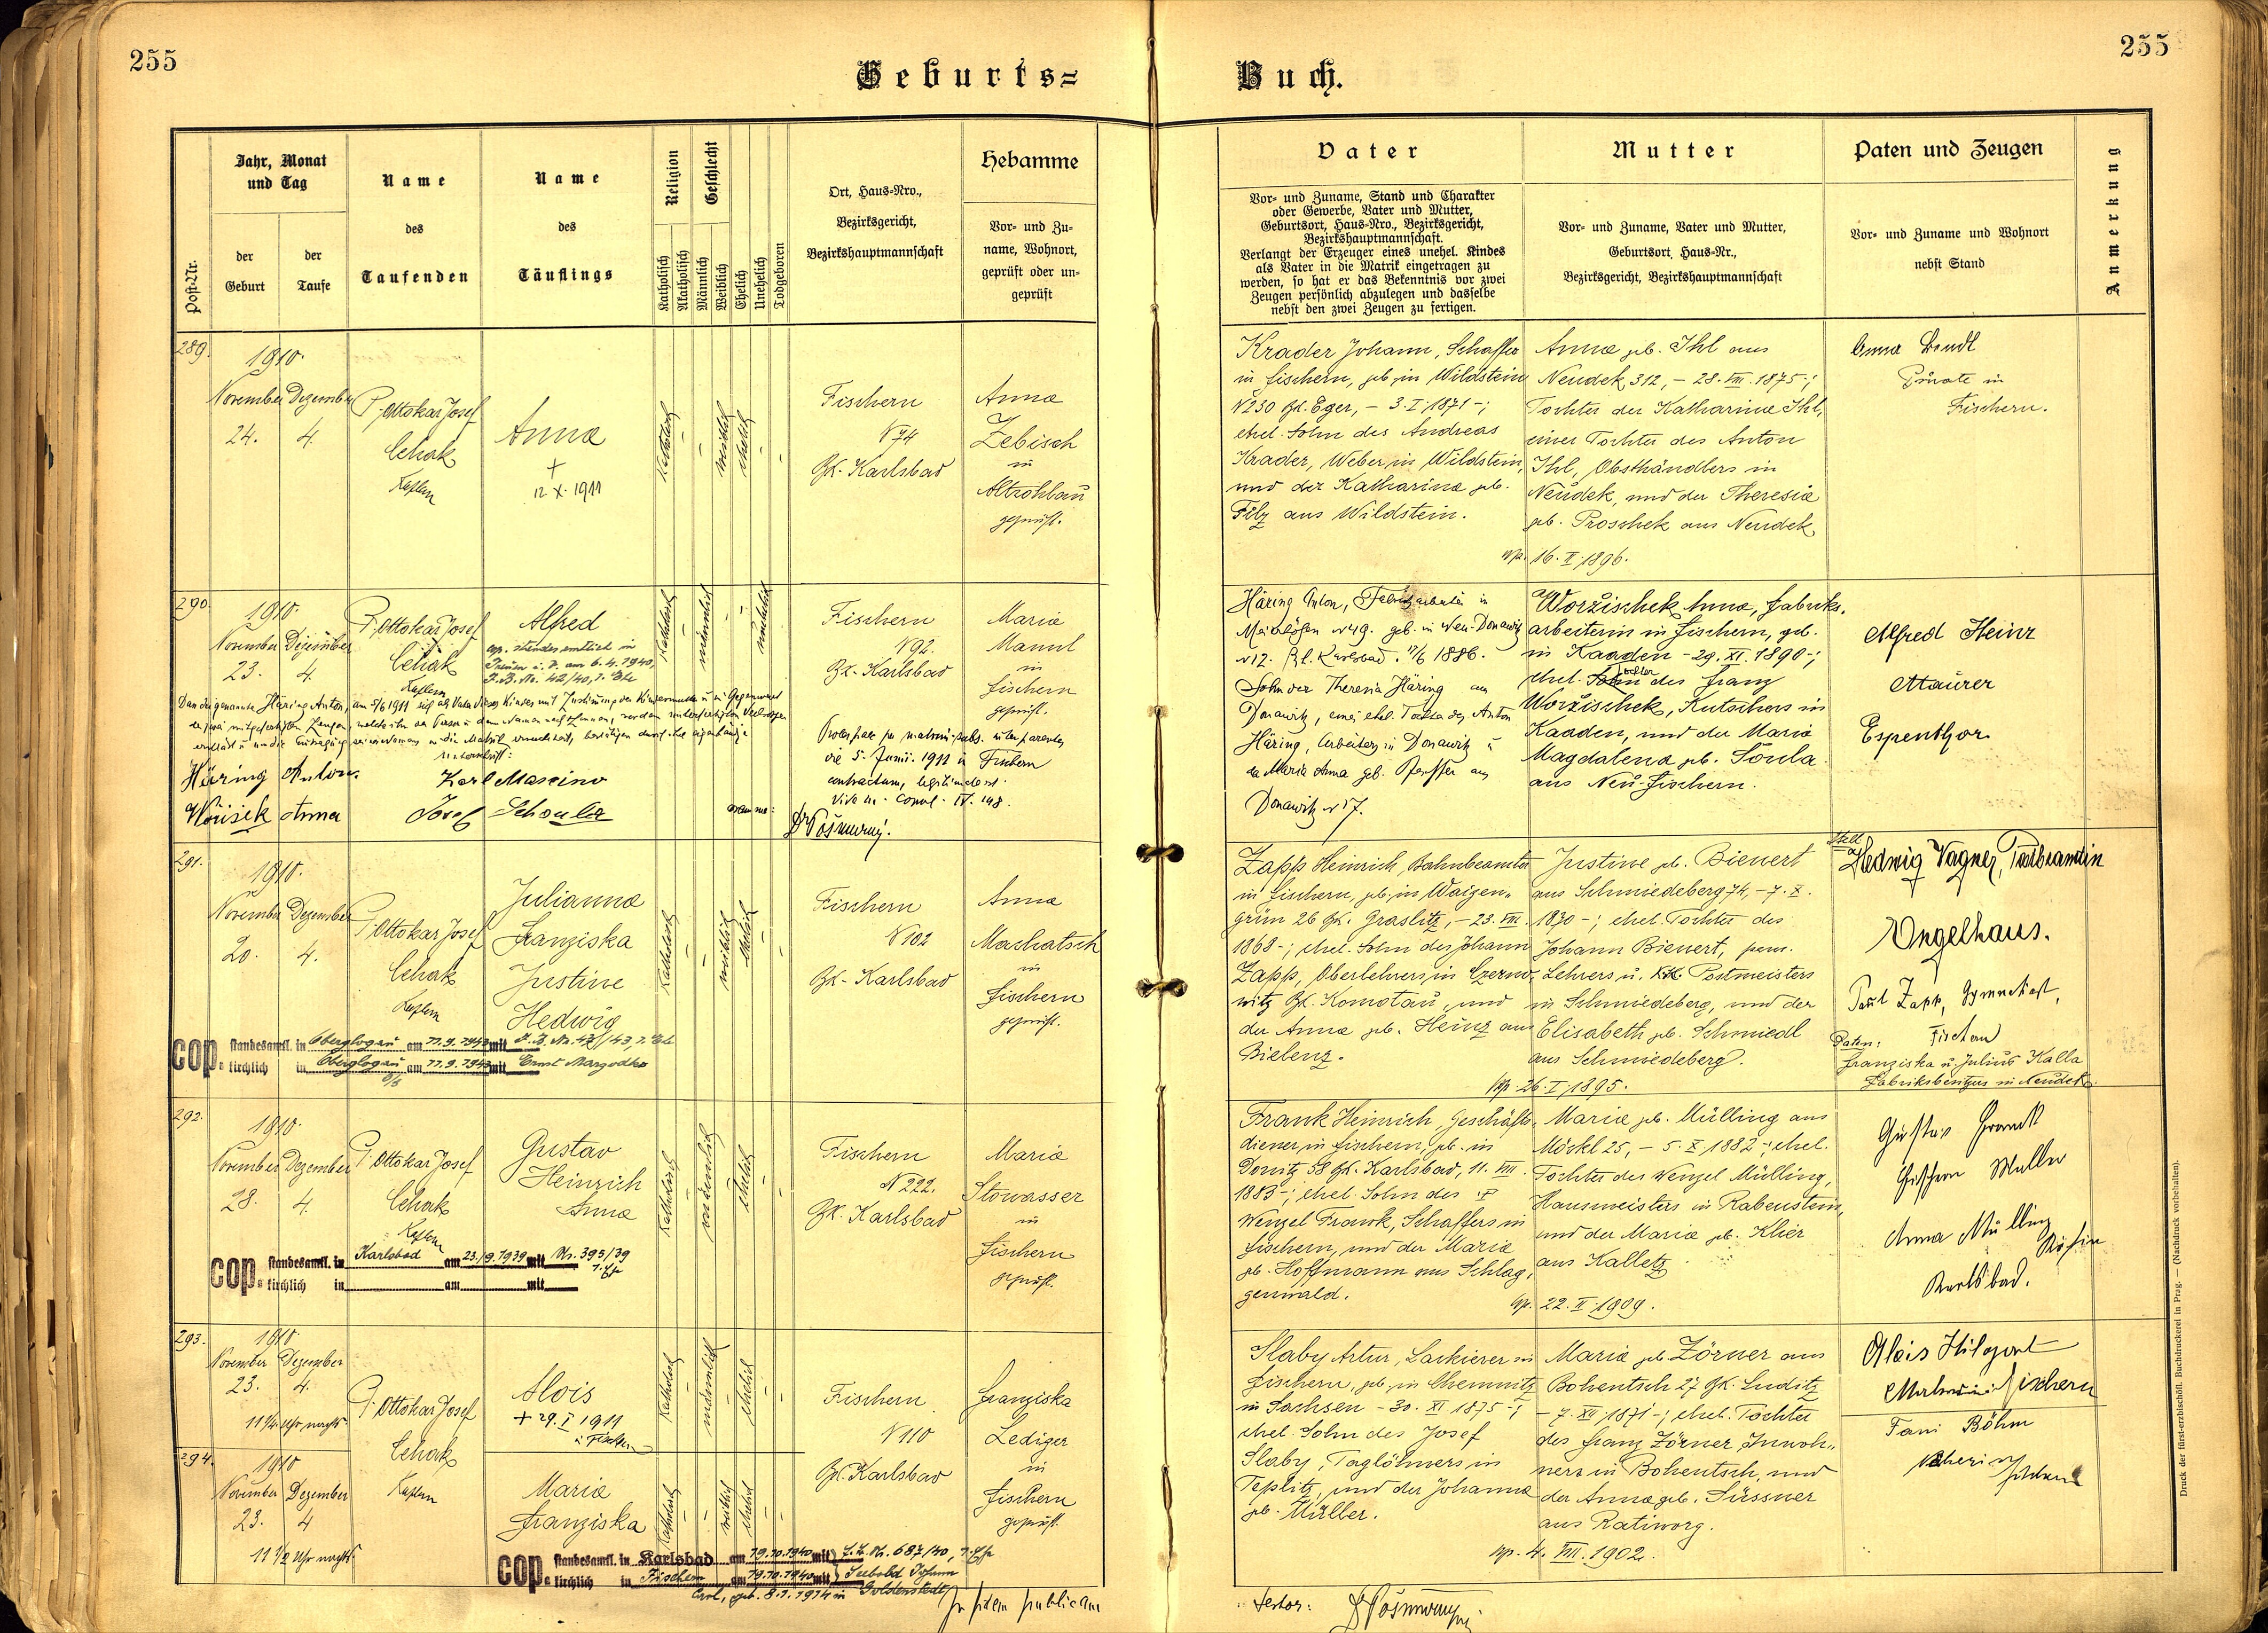 255
255
Geburts=
Buch.
Post-Nr.
Jahr, Monat
und Tag
der
Geburt
der
Taufe
Name
des
Taufenden
Name
des
Täuflings
Religion
Katholisch
Akatholisch
Geschlecht
Männlich
Weiblich
Ehelich
Unehelich
Todgeboren
Ort, Haus-Nro.,
Bezirksgericht,
Bezirkshauptmannschaft
Hebamme
Vor- und Zu-
name, Wohnort,
geprüft oder un-
geprüft
Vater
Vor- und Zuname, Stand und Charakter
oder Gewerbe, Vater und Mutter,
Geburtsort, Haus-Nro., Bezirksgericht,
Bezirkshauptmannschaft.
Verlangt der Erzeuger eines unehel. Kindes
als Vater in die Matrik eingetragen zu
werden, so hat er das Bekenntnis vor zwei
Zeugen persönlich abzulegen und dasselbe
nebst den zwei Zeugen zu fertigen.
Mutter
Vor- und Zuname, Vater und Mutter,
Geburtsort, Haus-Nr.,
Bezirksgericht, Bezirkshauptmannschaft
Paten und Zeugen
Vor- und Zuname und Wohnort
nebst Stand
Anmerkung
289.
1910.
November Dezember
24. 4.
P. Ottokar Josef
Cehak
Kaplan
Anna
+
12 X. 1911
Katholisch
weiblich
ehelich
Fischern
N 74
Bk. Karlsbad
Anna
Zebisch
in
Altrohlau
geprüft.
Krader Johann, Schaffer
in Fischern, geb. in Wildstein
N 230 Bk. Eger, - 3. I. 1871 -;
ehel. Sohn des Andreas
Krader, Weber in Wildstein,
und der Katharina geb.
Filz aus Wildstein.
Anna geb. Ihl aus
Neudek 312, - 28. VIII. 1875 -;
Tochter der Katharina Ihl,
einer Tochter des Anton
Ihl, Obsthändlers in
Neudek, und der Theresia
geb. Proschek aus Neudek
cop. 16. II. 1896.
Anna
Private in
Fischern.
290.
1910.
November Dezember
23. 4.
P. Ottokar Josef
Cehak
Kaplan
Alfred
cop. standesamtlich in
am 6. 4. 1940,
Katholisch
männlich
unehelich
Fischern
N 92.
Bk. Karlsbad
Maria
Mannl
in
Fischern
geprüft.
Häring Anton.
Karl Mascino
Anna
Josef Schoula
5. Junii. 1911 in Fischern
Häring Anton, Fabriksarbeiter in
N 49. geb. in Neu-Donawitz
N 12. Karlsbad. 1886.
Sohn der Theresia Häring aus
Donawitz, einer ehel. Tochter des Anton
Häring, Arbeiters in Donawitz u
da Maria Anna geb. aus
Donawitz N 17.
Woržischek Anna, Fabriks-
arbeiterin in Fischern, geb.
in Kaaden - 29. XI. 1890 -;
ehel. Tochter des Franz
Woržischek, Kutschers in
Kaaden, und der Maria
Magdalena geb. Soula
aus Neu-Fischern.
Alfred Heinz
Maurer
Espenthor
291.
1910.
November Dezember
20. 4.
P. Ottokar Josef
Cehak
Kaplan
Julianna
Franziska
Justine
Hedwig
Katholisch
weiblich
ehelich
Fischern
N 102
Bk. Karlsbad
Anna
Machatsch
in
Fischern
geprüft.
cop. standesamtl. in Oberglogau am 11. 9. 1943 mit
kirchlich in Oberglogau am 11. 9. 1943 mit Ernst
Zapp Heinrich, Bahnbeamter
in Fischern, geb. in Waizen-
grün 26 Bk. Graslitz, - 23. VIII.
1868 -; ehel. Sohn des Johann
Zapp, Oberlehrers in Czerno-
witz Bk. Komotau, und
der Anna geb. Heinz aus
Bielenz.
Justine geb. Bienert
aus Schmiedeberg 74, - 7. X.
1870 -; ehel. Tochter des
Johann Bienert, pens.
Lehrers u. k.k. Postmeisters
in Schmiedeberg, und der
Elisabeth geb. Schmiedl
aus Schmiedeberg.
cop. 26. I. 1895.
Hedwig Vagner, Postbeamtin
Engelhaus.
Paul Zapp, Gymnasiast,
Fischern
Paten:
Franziska u. Julius Kalla
Fabriksbesitzer in Neudek
292.
1910.
November Dezember
28. 4.
P. Ottokar Josef
Cehak
Kaplan
Gustav
Heinrich
Anna
Katholisch
männlich
ehelich
Fischern
N 222.
Bk. Karlsbad
Maria
Stowasser
in
Fischern
geprüft.
cop. standesamtl. in Karlsbad am 23./9. 1939 mit Nr. 393/39
kirchlich in am mit
Frank Heinrich, Geschäfts-
diener in Fischern, geb. in
Donitz 58 Bk. Karlsbad, 11. VIII.
1883 -; ehel. Sohn des
Wenzel Frank, Schaffers in
Fischern, und der Maria
geb. Hoffmann aus Schlag-
genwald.
Maria geb. Mülling aus
Möskl 25, - 5. X. 1882 -; ehel.
Tochter des Wenzel Mülling,
Hausmeisters in Rabenstein,
und der Maria geb. Klier
aus Kalletz
cop. 22. II. 1909.
Gustav Frank
Anna Mülling
Karlsbad.
293.
1910.
November Dezember
23. 4.
11 1/4 Uhr nachts
P. Ottokar Josef
Cehak
Kaplan
Alois
+ 29. I 1911
in Fischern
Katholisch
männlich
ehelich
Fischern
N 110
Bk. Karlsbad
Franziska
Lediger
in
Fischern
geprüft.
Slaby Artur, Lackierer in
Fischern, geb. in Chemnitz
in Sachsen - 30. XI 1875 -;
ehel. Sohn des Josef
Slaby, Taglöhners in
Teplitz, und der Johanna
geb. Müller.
Maria geb. Zörner aus
Bohentsch 27 Bk. Luditz
- 7. XII 1871 -; ehel. Tochter
des Franz Zörner, Inwoh-
ners in Bohentsch, und
der Anna geb. Süssner
aus Ratiworg.
cop. 4. VIII. 1902.
Alois
Fischern
Fani Böhm
294.
1910
November Dezember
23. 4
11 1/2 Uhr nachts
Maria
Franziska
Katholisch
weiblich
ehelich
cop. standesamtl. in Karlsbad am 19. 10. 1940 mit 687/40,
kirchlich in Fischern am 19. 10. 1940 mit Seebold Johann
Carl, geb. 8. 1. 1914 in
In fidem publicam
testor:
Druck der fürst-erzbischöfl. Buchdruckerei in Prag. — (Nachdruck vorbehalten).